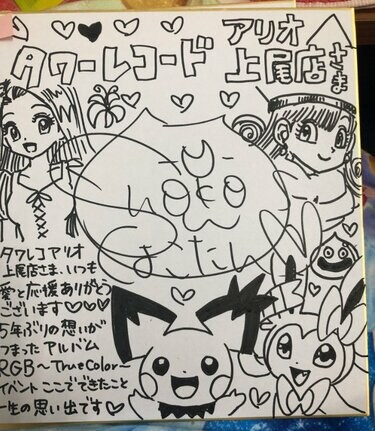 タワーレコード
アリオ
上尾店さま
しょこ
たん
タワレコアリオ
上尾店さま、いつも
愛と応援ありがとう
ございます♡♡♡
5年ぶりの想いが
つまったアルバム
RGB～True Color～
イベントここでできたこと
一生の思い出です♡